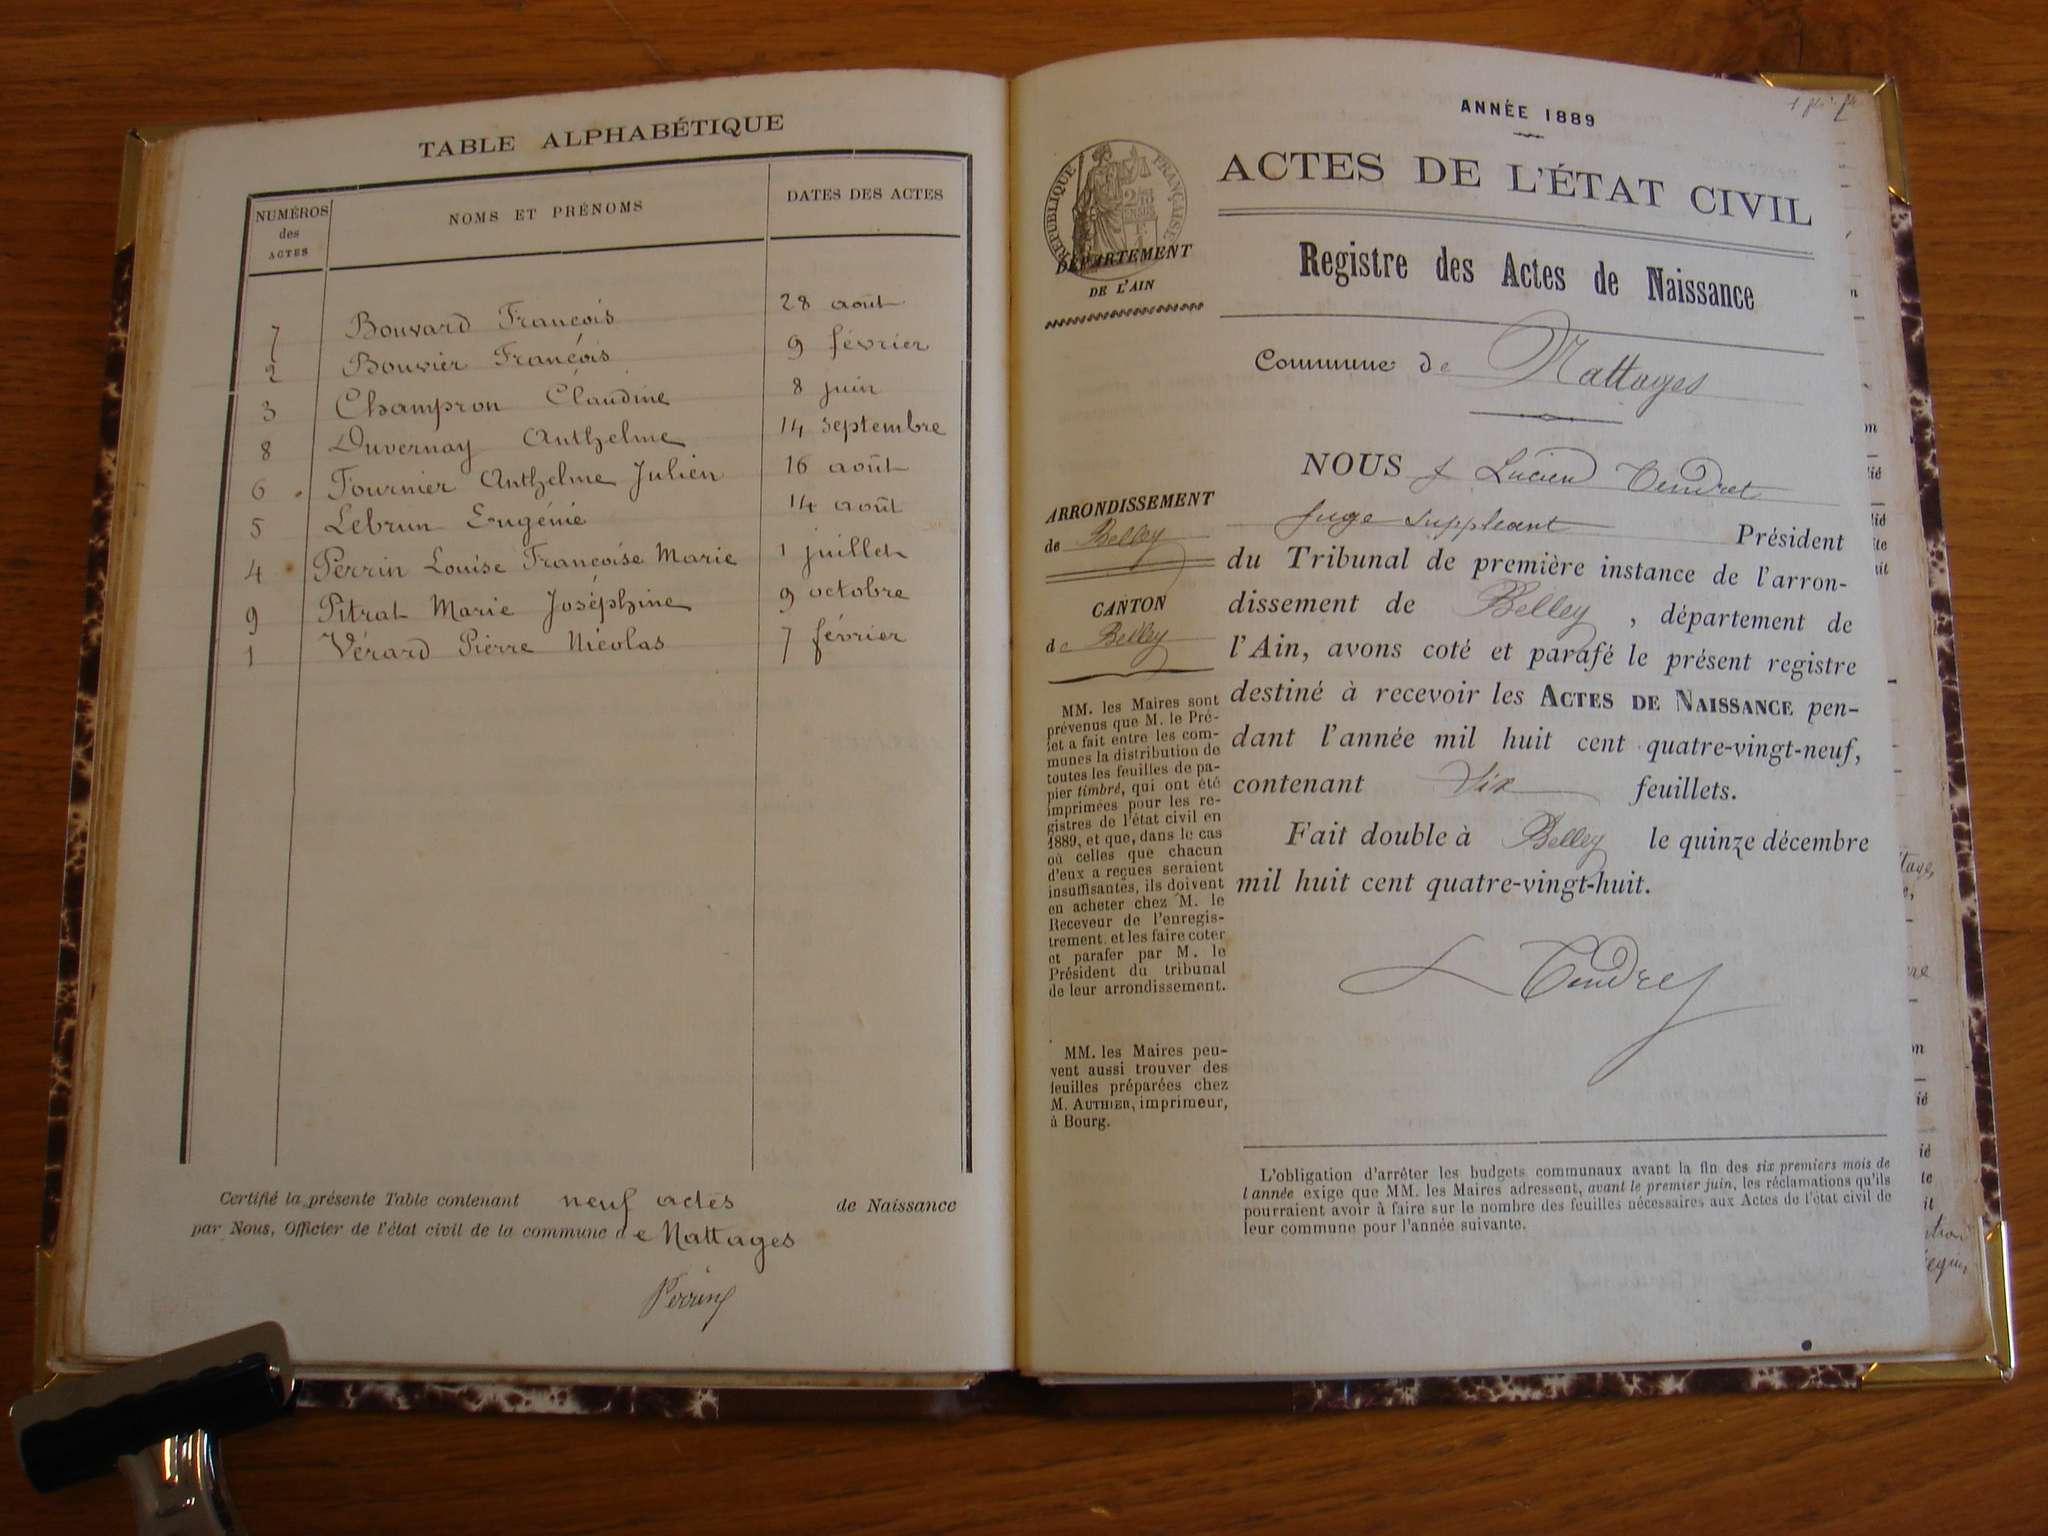 TABLE ALPHABÉTIQUE
NUMÉROS des ACTES
NOMS ET PRÉNOMS
DATES DES ACTES
7 Bouvard François 28 août
2 Bouvier François 9 février
3 Champron Claudine 8 juin
8 Duvernay Anthelme 14 septembre
6 Fournier Anthelme Julien 16 août
5 Lebrun Eugénie 14 août
4 Perrin Louise Françoise Marie 1 juillet
9 Pitrat Marie Joséphine 9 octobre
1 Vérard Pierre Nicolas 7 février
Certifié la présente Table contenant neuf actes de Naissance
par Nous, Officier de l'état civil de la commune de Nattages
Perrin
ANNÉE 1889
RÉPUBLIQUE FRANÇAISE
DÉPARTEMENT
DE L'AIN
ACTES DE L'ÉTAT CIVIL
Registre des Actes de Naissance
Commune de Nattages
ARRONDISSEMENT
de Belley
CANTON
de Belley
MM. les Maires sont
prévenus que M. le Pré-
fet a fait entre les com-
munes la distribution de
toutes les feuilles de pa-
pier timbré, qui ont été
imprimées pour les re-
gistres de l'état civil en
1889, et que, dans le cas
où celles que chacun
d'eux a reçues seraient
insuffisantes, ils doivent
en acheter chez M. le
Receveur de l'enregis-
trement, et les faire coter
et parafer par M. le
Président du tribunal
de leur arrondissement.
MM. les Maires peu-
vent aussi trouver des
feuilles préparées chez
M. AUTHIER, imprimeur,
à Bourg.
NOUS Lucien Tendret
Juge Suppléant Président
du Tribunal de première instance de l'arron-
dissement de Belley, département de
l'Ain, avons coté et parafé le présent registre
destiné à recevoir les ACTES DE NAISSANCE pen-
dant l'année mil huit cent quatre-vingt-neuf,
contenant Six feuillets.
Fait double à Belley le quinze décembre
mil huit cent quatre-vingt-huit.
L Tendret
L'obligation d'arrêter les budgets communaux avant la fin des six premiers mois de
l'année exige que MM. les Maires adressent, avant le premier juin, les réclamations qu'ils
pourraient avoir à faire sur le nombre des feuilles nécessaires aux Actes de l'état civil de
leur commune pour l'année suivante.